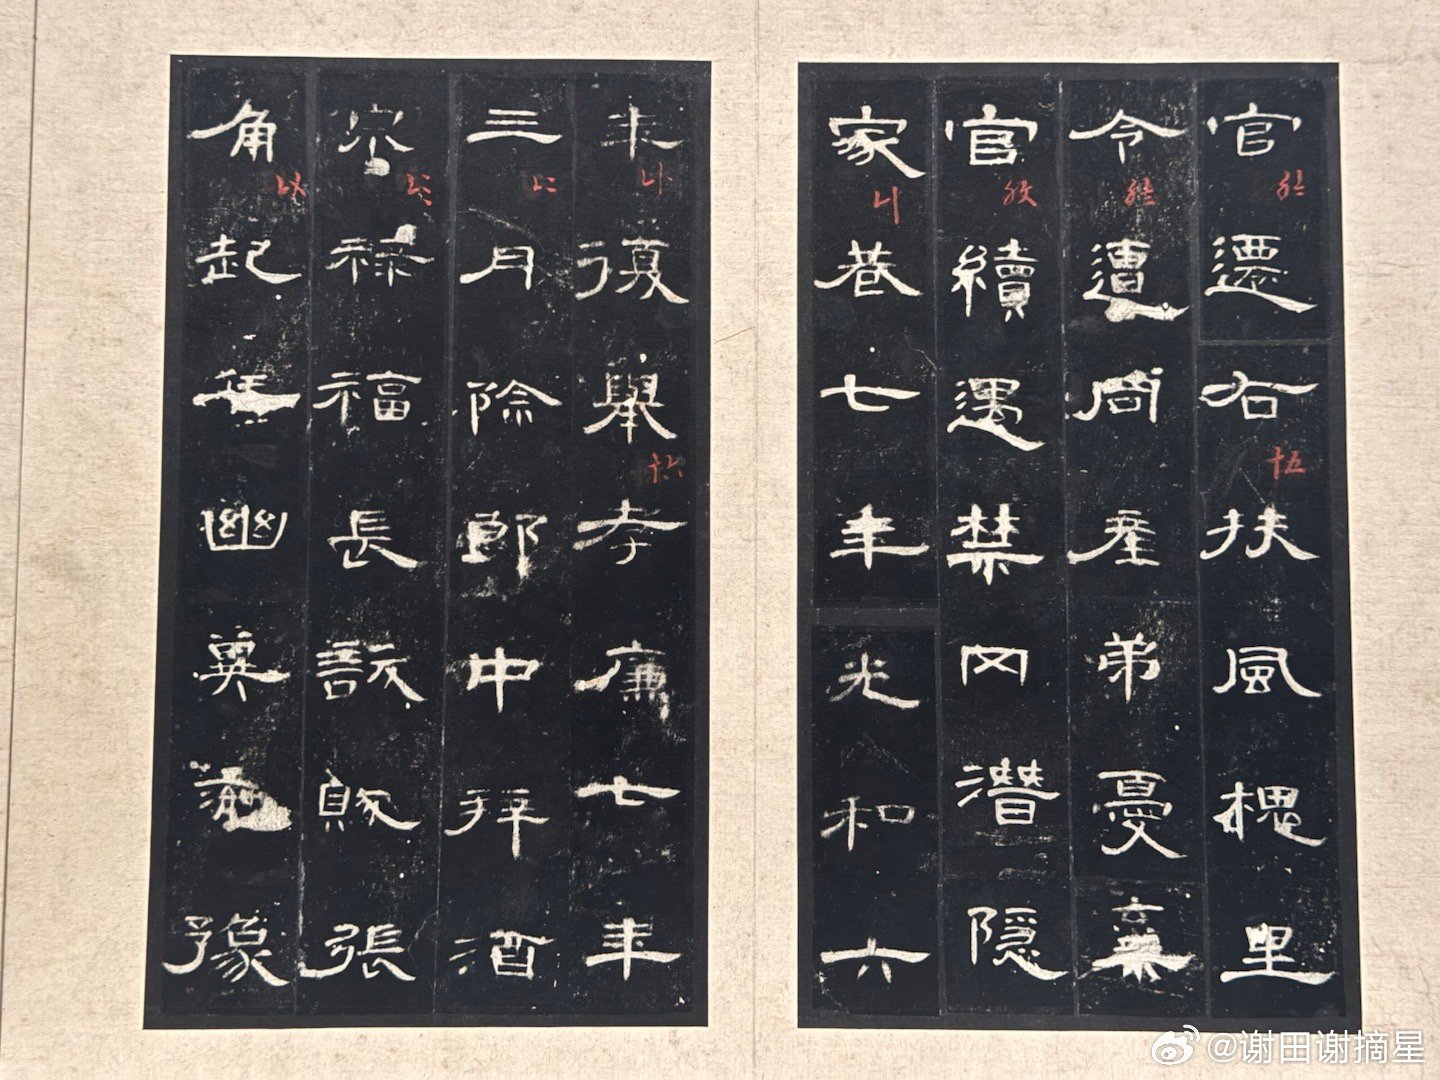 官遷右扶風槐里
令遭同產弟憂棄
官續遇禁冈潛隱
家巷七年光和六
年復舉孝廉七年
三月除郎中拜酒
泉祿福長訞賊張
角起兵幽冀兗豫
@谢田谢摘星